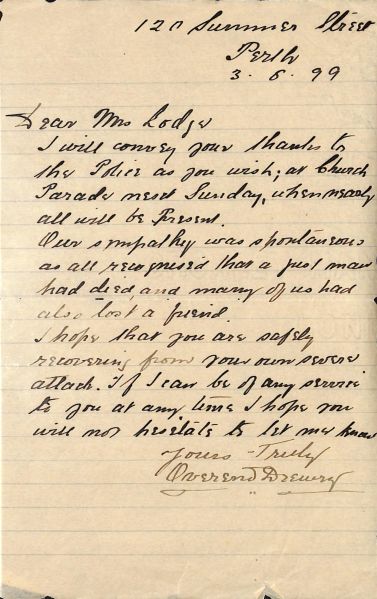 120 Summer Street
Perth
3. 6. 99
Dear Mrs Lodge
I will convey your thanks to
the Police as you wish, at Church
Parade next Sunday, when nearly
all will be Present.
Our sympathy was spontaneous
as all recognised that a just man
had died, and many of us had
also lost a friend.
I hope that you are safely
recovering from your own severe
attack. If I can be of any service
to you at any time I hope you
will not hesitate to let me know
Yours Truly
Overend Drewry